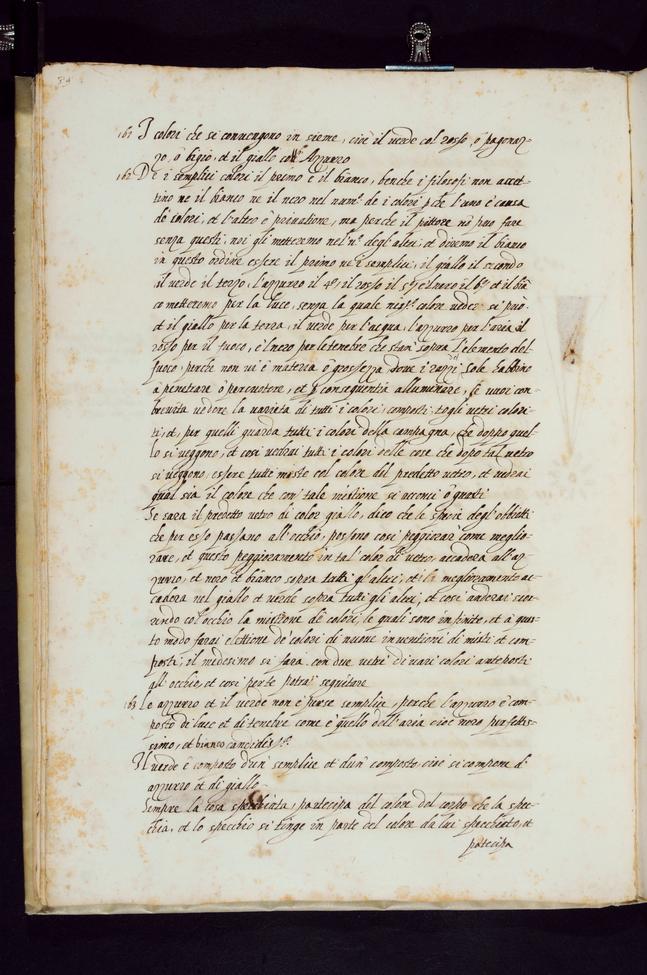 161 I colori che si convengono in sieme, cioè il verde col rosso, ò pagonaz-
zo, ò bigio, et il giallo con Azzurro
162 De i semplici colori il primo è il bianco, benche i filosofi non accet-
tino ne il bianco ne il nero nel num.º de i colori p che l'uno è causa
de colori, et l'altro è privatione, ma perche il pittore nō puo fare
senza questi, noi gli metteremo nel n.º degl'altri, et diremo il bianco
in questo ordine essere il primo ne i semplici, il giallo il secondo
il verde il terzo, l'azzurro il 4º, il rosso il 5º, et il nero il 6º, et il biā
co metteremo per la luce, senza la quale colore veder si può
et il giallo per la terra, il verde per l'acqua, l'azzurro per l'aria, il
rosso per il fuoco, è l nero per le tenebre che stan sopra l'elemento del
fuoco, perche non vi è materia ò grossezza dove i razzi del sole habbino
à penetrare ò percuotere, et p conseguentia alluminare, se vuoi con
brevità vedere la varietà di tutti i colori composti, togli vetri colori-
ti, et per quelli guarda tutti i colori della campagna, che doppo quel-
lo si veggono, et così vedrai tutti i colori delle cose che dopo tal vetro
si veggono, essere tutte miste col colore del predetto vetro, et vedrai
qual sia il colore che con tale mistione si acconci ò guasti
Se sarà il predetto vetro di color giallo, dico che le spetie degl'obbietti
che per esso passano all'occhio, possono così peggiorar come meglio-
rare, et questo peggioramento in tal color di vetro, accaderà all'az-
zurro, et nero et bianco sopra tutti gl'altri, et il meglioramento ac-
caderà nel giallo et verde sopra tutti gli altri, et così anderai scor-
rendo col'occhio la mistione de colori, le quali sono infinite, et à ques-
to modo farai elettione de' colori di nuove inventioni di misti et com-
posti, il medesimo si farà con due vetri di varii colori anteposti
all'occhio, et così per te potrai seguitare
163 Lo azzurro et il verde non è per se semplice, perche l'azzurro è com-
posto di luce et di tenebre come è quello dell'aria cioè nero perfettis-
simo, et bianco
Il verde è composto d'un semplice et d'un composto cioè si compone d'
azzurro et di giallo
Sempre la cosa specchiata, partecipa del colore del corpo che la spec-
chia, et lo specchio si tinge in parte del colore da lui specchiato, et
patecipa